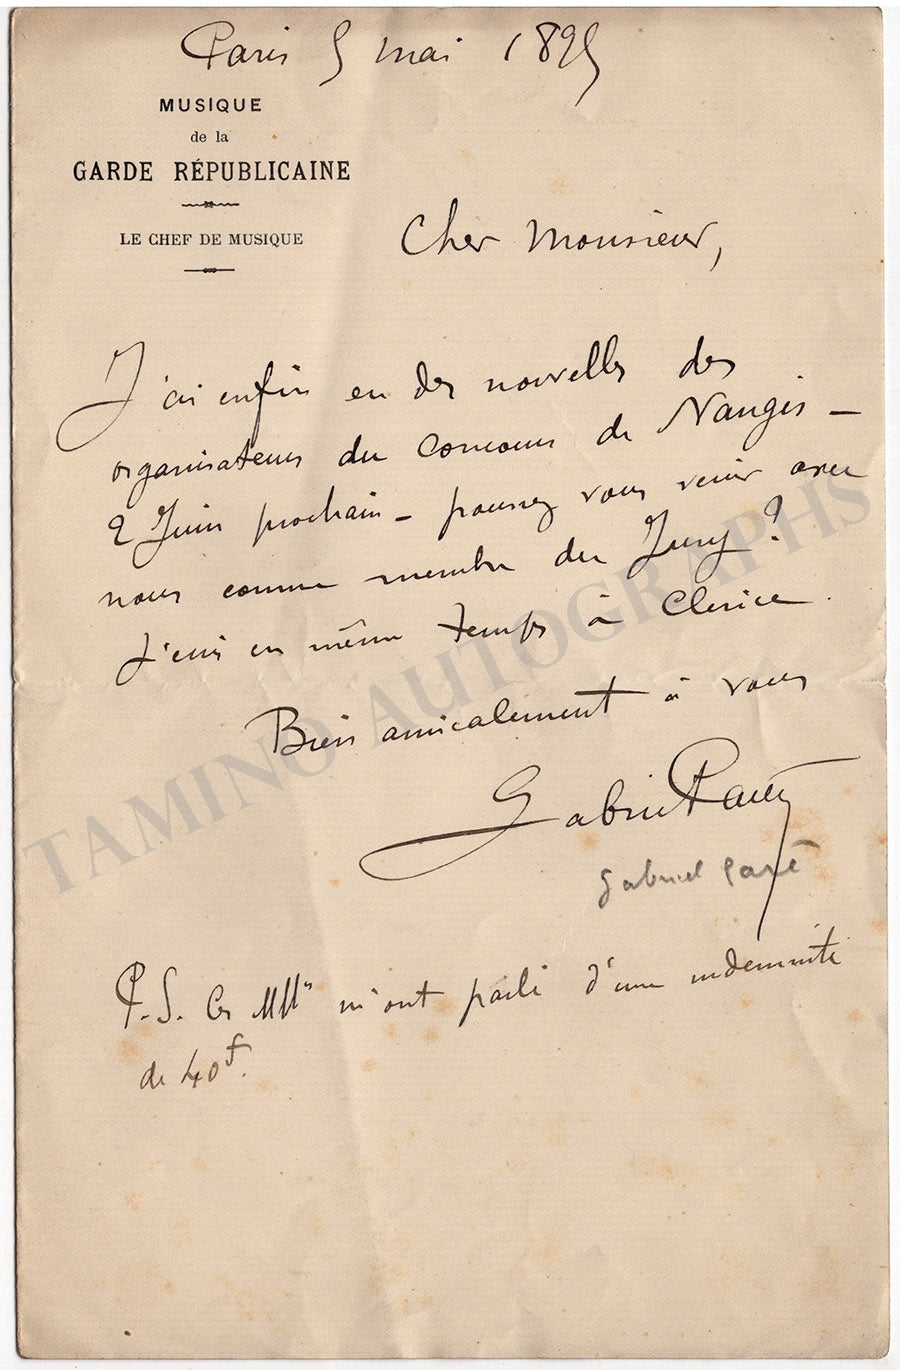 Paris 5 mai 1895
MUSIQUE
de la
GARDE RÉPUBLICAINE
LE CHEF DE MUSIQUE
Cher Monsieur,
J'ai enfin eu des nouvelles des
organisateurs du concours de Nangis —
2 Juin prochain — pourrez vous venir avec
nous comme membre du Jury ?
J'écris en même temps à Clerice.
Bien amicalement à vous
Gabriel Parès
Gabriel Parès
P.S. Ces MMrs m'ont parlé d'une indemnité
de 40f.
TAMINO AUTOGRAPHS